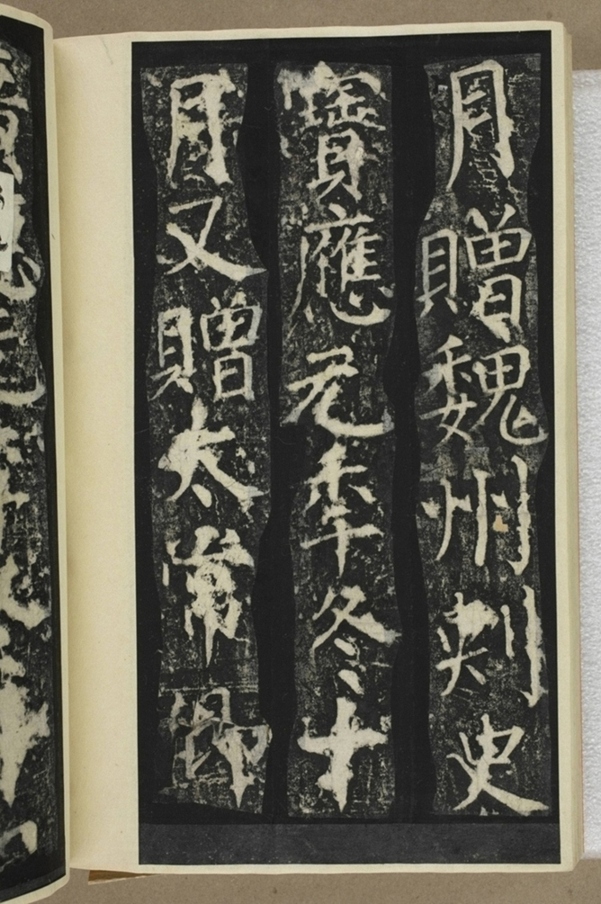 月贈魏州刾史
寶應元秊冬十
月又贈太常卿